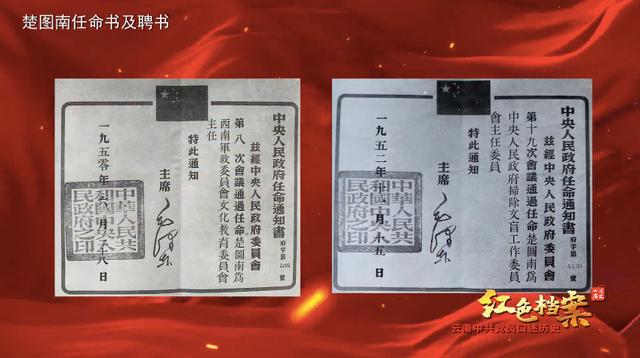 楚图南任命书及聘书
中央人民政府任命通知書
府字第
號
兹經中央人民政府委員會
第八次會議通過任命楚圖南爲
西南軍政委員會文化教育委員會
主任
特此通知
主席
毛澤東
一九五〇年
月
日
中華人民共
和國中央人
民政府之印
中央人民政府任命通知書
府字第
號
兹經中央人民政府委員會
第十九次會議通過任命楚圖南爲
中央人民政府掃除文盲工作委員
會主任委員
特此通知
主席
毛澤東
一九五二年
月十五日
中華人民共
和國中央人
民政府之印
红色档案
云南中共党员口述历史